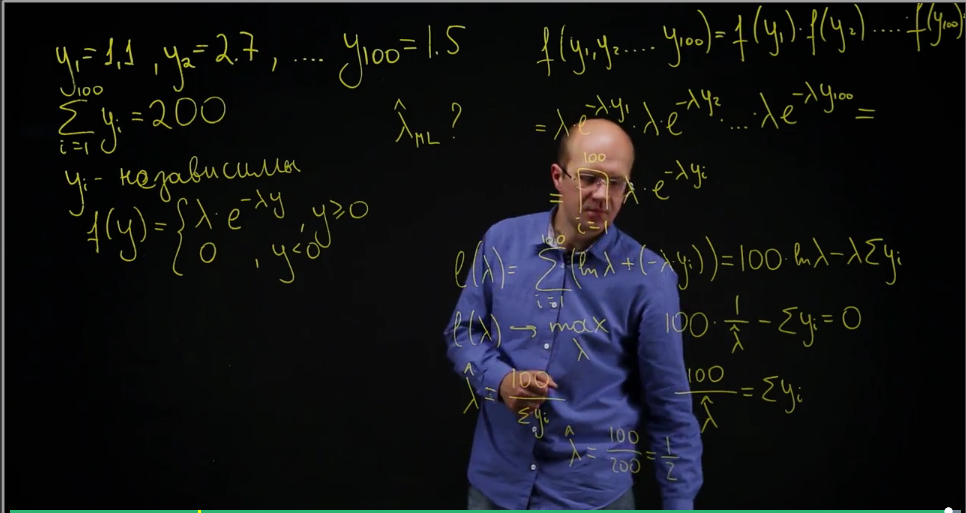 y₁=1,1 , y₂=2.7 , .... y₁₀₀=1.5
y₁₀₀
∑ yᵢ = 200
i=1
λ̂_ML ?
yᵢ - независимы
f(y) = { λ·e^(-λy) , y≥0
0 , y<0
f(y₁,y₂.... y₁₀₀) = f(y₁)·f(y₂).....·f(y₁₀₀)
= λ·e^(-λ·y₁)·λ·e^(-λy₂)·...·λe^(-λy₁₀₀) =
= ∏_(i=1)^(100) λ·e^(-λyᵢ)
ℓ(λ) = ∑_(i=1)^(100) (ln λ + (-λ·yᵢ)) = 100·ln λ - λ∑yᵢ
ℓ(λ) → max_λ
100·1/λ̂ - ∑yᵢ = 0
λ̂ = 100/∑yᵢ
100/λ̂ = ∑yᵢ
λ̂ = 100/200 = 1/2